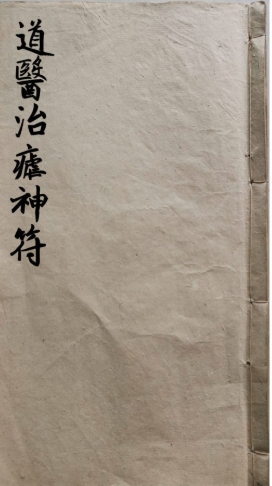 道醫治瘧神符